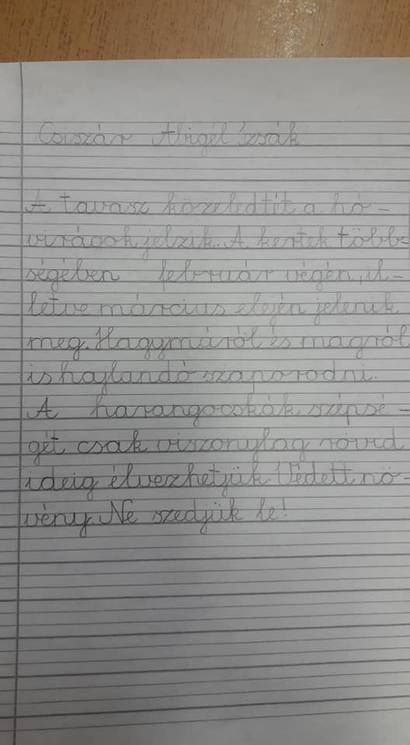 Csiszár Abigél Izsák
A tavasz közeledtit a hó-
virágok jelzik. A kertek több-
ségében február végén, il-
letve március elején jelenik
meg. Hagymáról és magról
is hajlandó szaporodni.
A harangocskák szépsé-
gét csak viszonylag rövid
ideig élvezhetjük. Védett nö-
vény. Ne szedjük le!